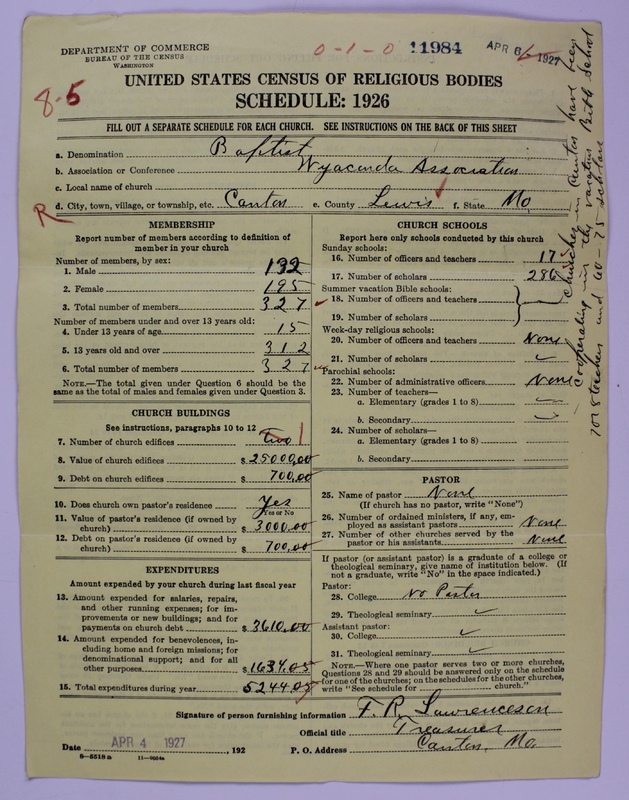 DEPARTMENT OF COMMERCE
BUREAU OF THE CENSUS
WASHINGTON
0-1-0
11984
APR 6 1927
8-5
UNITED STATES CENSUS OF RELIGIOUS BODIES
SCHEDULE: 1926
FILL OUT A SEPARATE SCHEDULE FOR EACH CHURCH. SEE INSTRUCTIONS ON THE BACK OF THIS SHEET
a. Denomination Baptist
b. Association or Conference Wyaconda Association
c. Local name of church
d. City, town, village, or township, etc. Canton e. County Lewis f. State Mo.
R
MEMBERSHIP
Report number of members according to definition of
member in your church
Number of members, by sex:
1. Male 132
2. Female 195
3. Total number of members 327
Number of members under and over 13 years old:
4. Under 13 years of age 15
5. 13 years old and over 312
6. Total number of members 327
NOTE.—The total given under Question 6 should be the
same as the total of males and females given under Question 3.
CHURCH BUILDINGS
See instructions, paragraphs 10 to 12
7. Number of church edifices two 1
8. Value of church edifices $ 25000,00
9. Debt on church edifices $ 700,00
10. Does church own pastor's residence Yes
Yes or No
11. Value of pastor's residence (if owned by
church) $ 3000,00
12. Debt on pastor's residence (if owned by
church) $ 700,00
EXPENDITURES
Amount expended by your church during last fiscal year
13. Amount expended for salaries, repairs,
and other running expenses; for im-
provements or new buildings; and for
payments on church debt $ 3610,00
14. Amount expended for benevolences, in-
cluding home and foreign missions; for
denominational support; and for all
other purposes $ 1634.05
15. Total expenditures during year 5244.05
CHURCH SCHOOLS
Report here only schools conducted by this church
Sunday schools:
16. Number of officers and teachers 17
17. Number of scholars 286
Summer vacation Bible schools:
18. Number of officers and teachers
19. Number of scholars
Week-day religious schools:
20. Number of officers and teachers None
21. Number of scholars
Parochial schools:
22. Number of administrative officers None
23. Number of teachers—
a. Elementary (grades 1 to 8)
b. Secondary
24. Number of scholars—
a. Elementary (grades 1 to 8)
b. Secondary
PASTOR
25. Name of pastor None
(If church has no pastor, write "None")
26. Number of ordained ministers, if any, em-
ployed as assistant pastors None
27. Number of other churches served by the
pastor or his assistants None
If pastor (or assistant pastor) is a graduate of a college or
theological seminary, give name of institution below. (If
not a graduate, write "No" in the space indicated.)
Pastor:
28. College No Pastor
29. Theological seminary
Assistant pastor:
30. College
31. Theological seminary
NOTE.—Where one pastor serves two or more churches,
Questions 28 and 29 should be answered only on the schedule
for one of the churches; on the schedules for the other churches,
write "See schedule for church."
churches in Canton have been
cooperating in the vacation Bible School
7 or 8 teachers and 60-75 scholars
Signature of person furnishing information F. R. Lawrenceson
Official title Treasurer
Date APR 4 1927, 192 P. O. Address Canton, Mo.
8-5518a 11-9054a